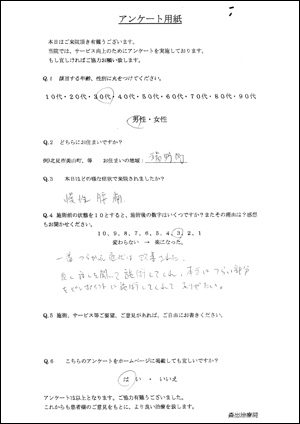 アンケート用紙
本日はご来院頂き有難うございます。
当院では、サービス向上のためにアンケートを実施しております。
もし宜しければご協力お願い致します。
Q.1 該当する年齢、性別に丸をつけてください。
10代・20代・30代・40代・50代・60代・70代・80代・90代
男性・女性
Q.2 どちらにお住まいですか?
例)北見市美山町、等 お住まいの地域:
Q.3 本日はどの様な症状で来院されましたか?
慢性腰痛
Q.4 施術前の状態を10とすると、施術後の数字はいくつですか?またその理由は?感想
もお聞かせください。
10、9、8、7、6、5、4、3、2、1
変わらない → 楽になった。
一番つらかった
施術してくれ、本当につらい部分
施術してくれて ありがたい。
Q.5 施術、サービス等ご要望、ご意見があれば、ご自由にお書きください。
Q.6 こちらのアンケートをホームページに掲載しても宜しいですか?
はい・いいえ
アンケートは以上となります。ご協力有難うございました。
これからも患者様のご意見をもとに、より良い治療を致します。
森出治療院